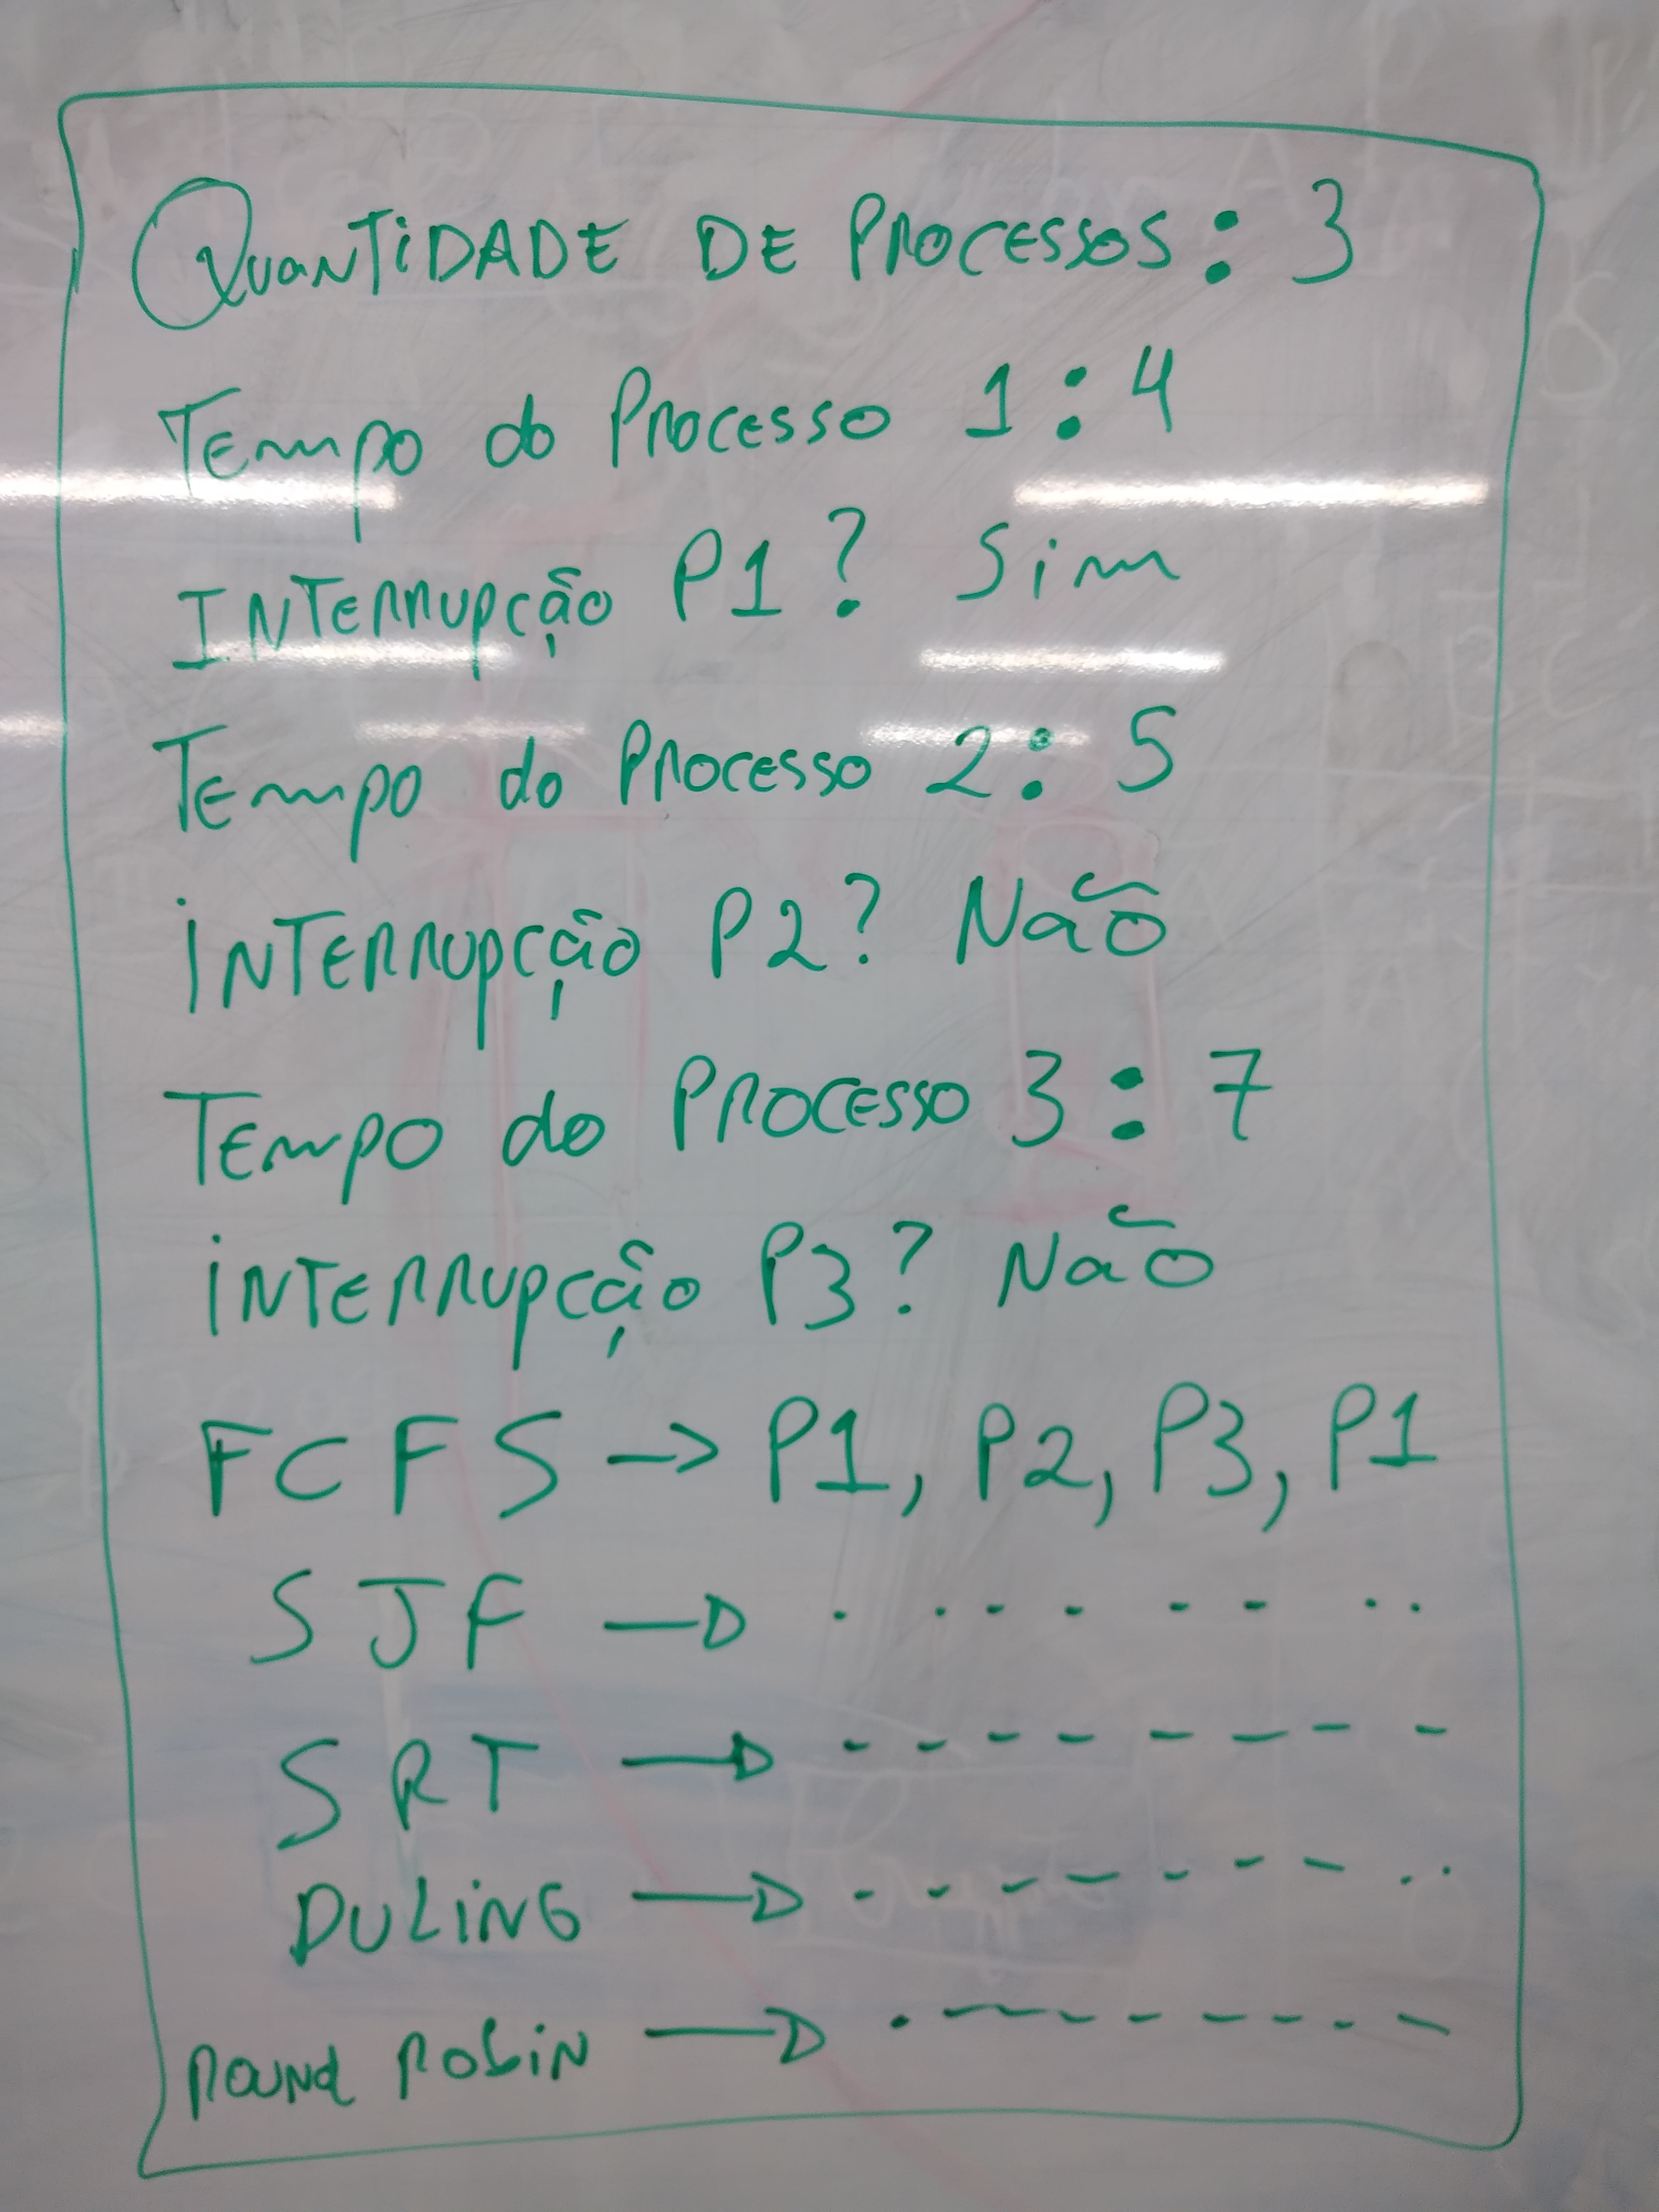 QUANTIDADE DE PROCESSOS: 3
Tempo do Processo 1: 4
Interrupção P1? Sim
Tempo do Processo 2: 5
Interrupção P2? Não
Tempo do Processo 3: 7
Interrupção P3? Não
FCFS -> P1, P2, P3, P1
SJF
SRT
DULING
Round Robin